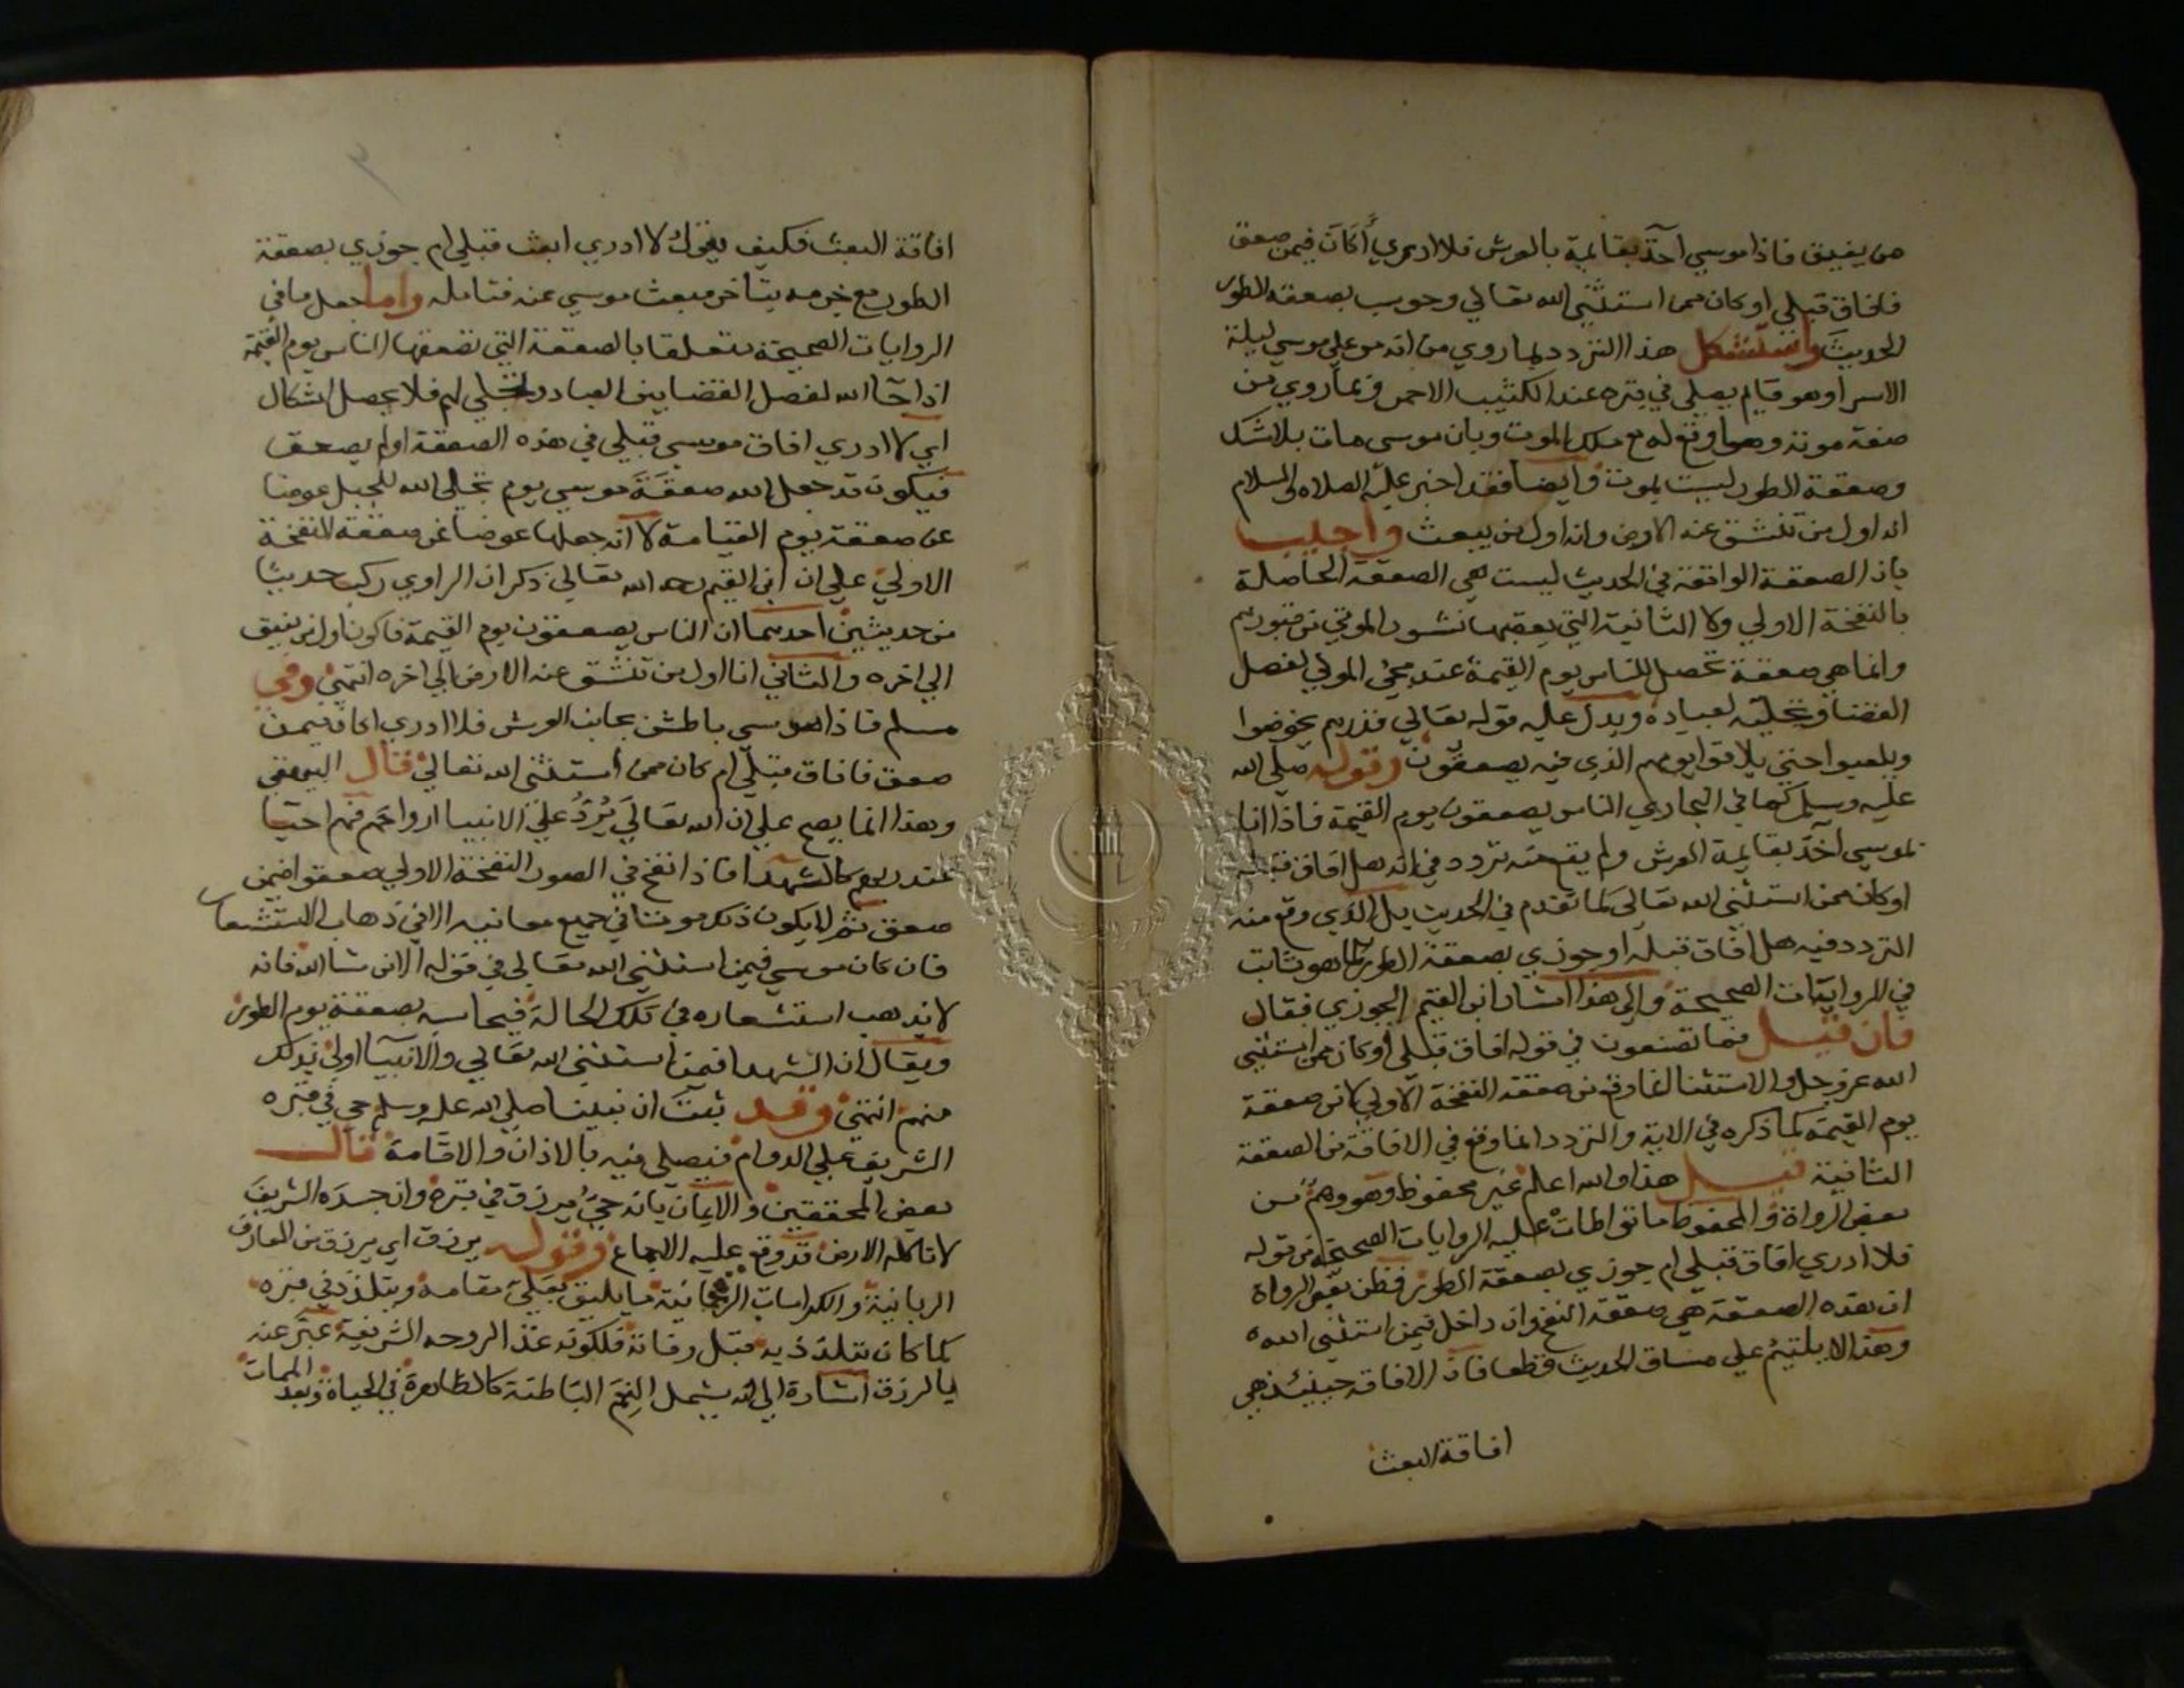 من يفيق فاذا موسي آخذ بقايمة بالعرش فلا ادري أكان فيمن صعق
فافاق قبلي او كان ممن استثني الله تعالي وحوسب بصعقة الطور
الحديث واستشكل هذا التردد بما روي من انه مر علي موسي ليلة
الاسرا وهو قايم يصلي في قبره عند الكثيب الاحمر وبما روي من
صفة موته وهما وقع له مع ملك الموت وبان موسي مات بلا شك
وصعقة الطور ليست بموت وايضا فقد اخبر عليه الصلاة والسلام
انه اول من تنشق عنه الارض وانه اول من يبعث واجيب
بان الصعقة الواقعة في الحديث ليست هي الصعقة الحاصلة
بالنفخة الاولي ولا الثانية التي يعقبها نشور الموتي من قبورهم
وانما هي صعقة تحصل للناس يوم القيمة عند مجئ المولي لفصل
القضا وتجليه لعباده ويدل عليه قوله تعالي فذرهم يخوضوا
ويلعبوا حتي يلاقوا يومهم الذي فيه يصعقون وقوله صلي الله
عليه وسلم كما في البخاري الناس يصعقون يوم القيمة فاذا انا
بموسي آخذ بقايمة العرش ولم يقع منه تردد في انه هل افاق قبله
او كان ممن استثني الله تعالي كما تقدم في الحديث بل الذي وقع منه
التردد فيه هل افاق قبله او جوزي بصعقة الطور كما هو ثابت
في الروايات الصحيحة والي هذا اشار ابن القيم الجوزي فقال
فان قيل فما تصنعون في قوله افاق قبلي او كان ممن استثني
الله عز وجل والاستثنا انما وقع من صعقة النفخة الاولي لا من صعقة
يوم القيمة كما ذكره في الاية والتردد انما وقع في الافاقة من الصعقة
الثانية قيل هذا والله اعلم غير محفوظ وهو وهم من
بعض الرواة والمحفوظ ما تواطات عليه الروايات الصحيحة من قوله
فلا ادري افاق قبلي ام جوزي بصعقة الطور فظن بعض الرواة
ان هذه الصعقة هي صعقة النفخ وان داخل فيمن استثني الله
وهذا لا يلتيم علي مساق الحديث قطعا فان الافاقة حينيئذ هي
افاقة البعث
افاقة البعث فكيف يقول لا ادري ابعث قبلي ام جوزي بصعقة
الطور مع جزمه بتاخر مبعث موسي عنه فتامله واما جعل ما في
الروايات الصحيحة متعلقا بالصعقة التي تصعقها الناس يوم القيمة
اذا جا الله لفصل القضا بين العباد وتجلي لهم فلا يحصل اشكال
اي لا ادري افاق موسي قبلي في هذه الصعقة او لم يصعق
فيكون قد جعل الله صعقة موسي يوم تجلي الله للجبل عوضا
عن صعقة يوم القيامة لا انه جعلها عوضا عن صعقة النفخة
الاولي علي ان ابن القيم رحمه الله تعالي ذكر ان الراوي ركب حديثا
من حديثين احدهما ان الناس يصعقون يوم القيمة فاكون اول من يفيق
الي اخره والثاني انا اول من تنشق عنه الارض الي اخره انتهي وفي
مسلم فاذا موسي باطش بجانب العرش فلا ادري اكان فيمن
صعق فافاق قبلي ام كان ممن استثني الله تعالي قال البيهقي
وهذا انما يصح علي ان الله تعالي يُرَدُّ علي الانبيا ارواحهم فهم احيا
عند ربهم كالشهدا فاذا نفخ في الصور النفخة الاولي صعقوا فيمن
صعق ثم لا يكون ذلك موتا في جميع معانيه الا في ذهاب الاستشعار
فان كان موسي فيمن استثني الله تعالي في قوله الا من شا الله فانه
لا يذهب استشعاره في تلك الحالة فيحاسبه بصعقة يوم الطور
ويقال ان الشهدا فيمن استثني الله تعالي والانبيا اولي بذلك
منهم انتهي وقد ثبت ان نبينا صلي الله عليه وسلم حي في قبره
الشريف علي الدوام فيصلي فيه بالاذان والاقامة قال
بعض المحققين والايمان بانه حي يرزق في قبره وان جسده الشريف
لا تاكله الارض قد وقع عليه الاجماع وقوله يرزق اي يرزق من المعارف
الربانية والكرامات الرحمانية ما يليق بعلي مقامه ويتلذذ في قبره
كما كان يتلذذ به قبل وفاته فلكونه غذا لروحه الشريفة عبر عنه
بالرزق اشارة الي انه يشمل النعم الباطنة كالظاهرة في الحياة وبعد الممات